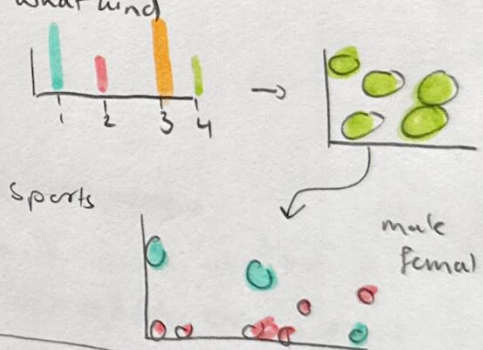 what kind
1 2 3 4
Sports
male
femal